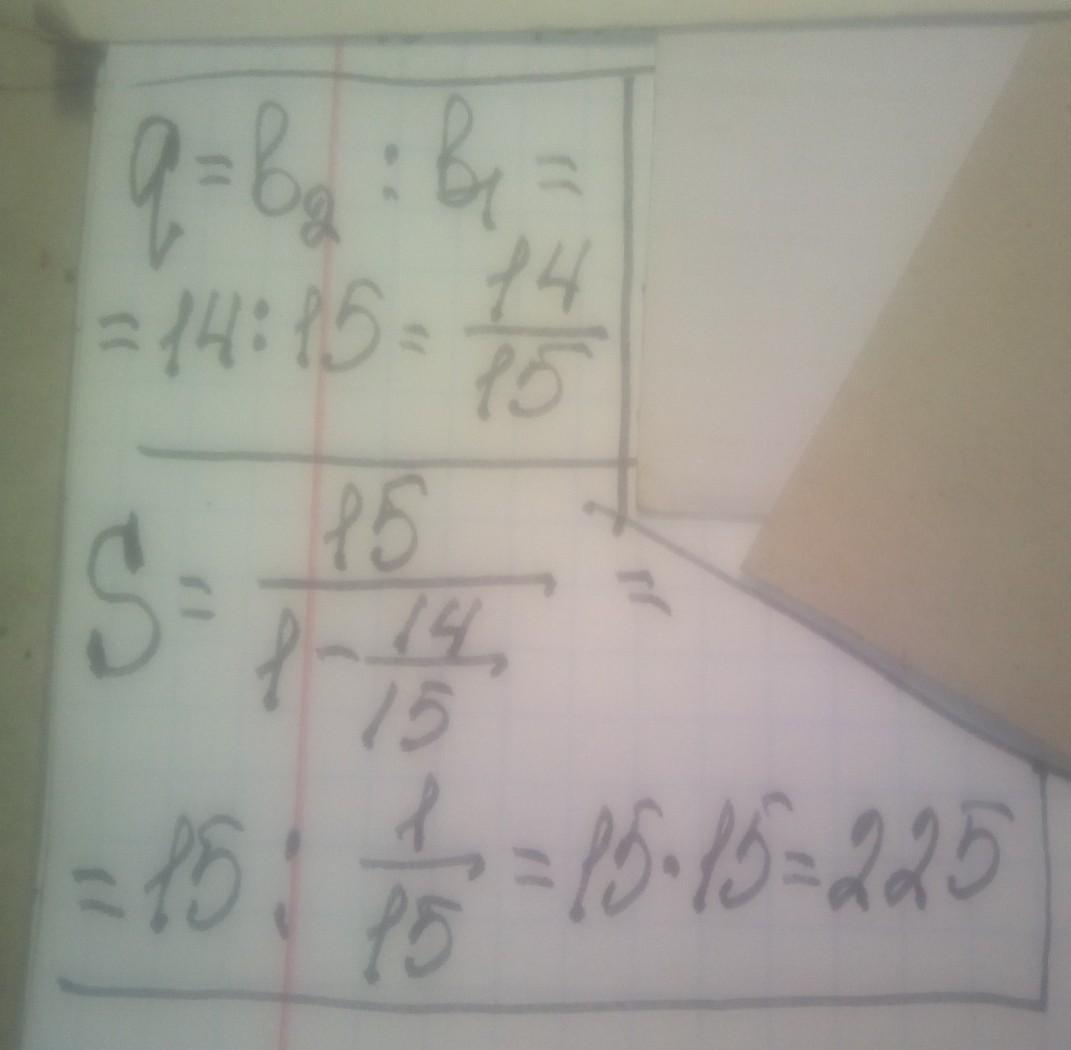 q = b₂ : b₁ =
= 14 : 15 = 14/15
S = 15/(1 - 14/15) =
= 15 : 1/15 = 15 · 15 = 225